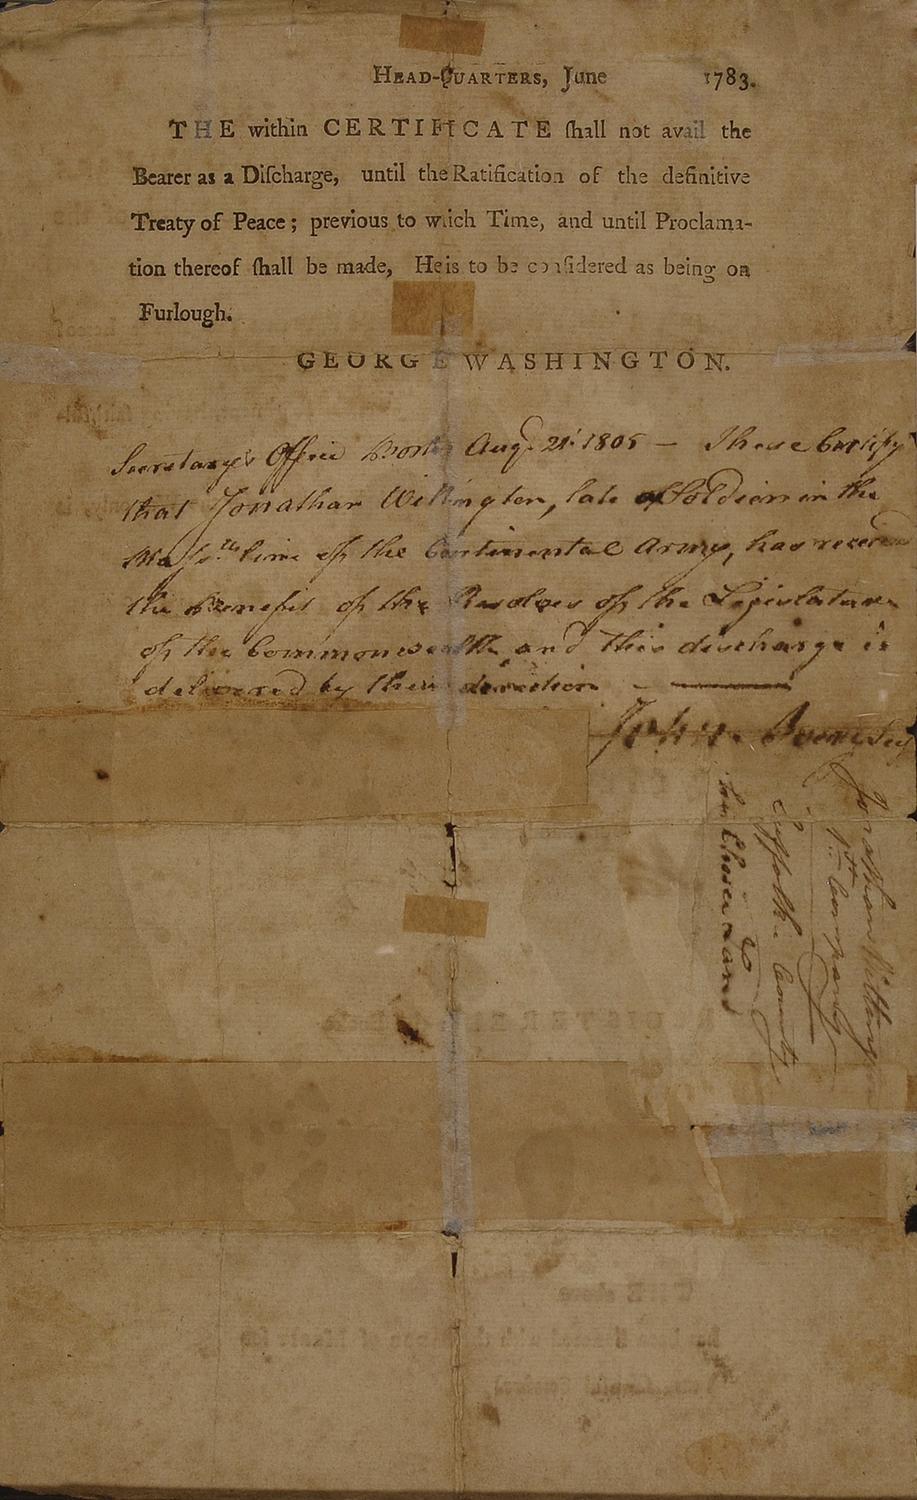 HEAD-QUARTERS, June 1783.
THE within CERTIFICATE ſhall not avail the
Bearer as a Diſcharge, until the Ratification of the definitive
Treaty of Peace; previous to which Time, and until Proclama-
tion thereof ſhall be made, He is to be conſidered as being on
Furlough.
GEORGE WASHINGTON.
Secretary's Office Boston Augt. 21st 1805 — These Certify
that Jonathan Willington, late a Soldier in the
Massts. line of the Continental Army, has received
the Benefit of the Resolves of the Legislature
of the Commonwealth and this discharge is
delivered by their direction —
John
Jonathan Willington
Company
Suffolk County
Land
THE above